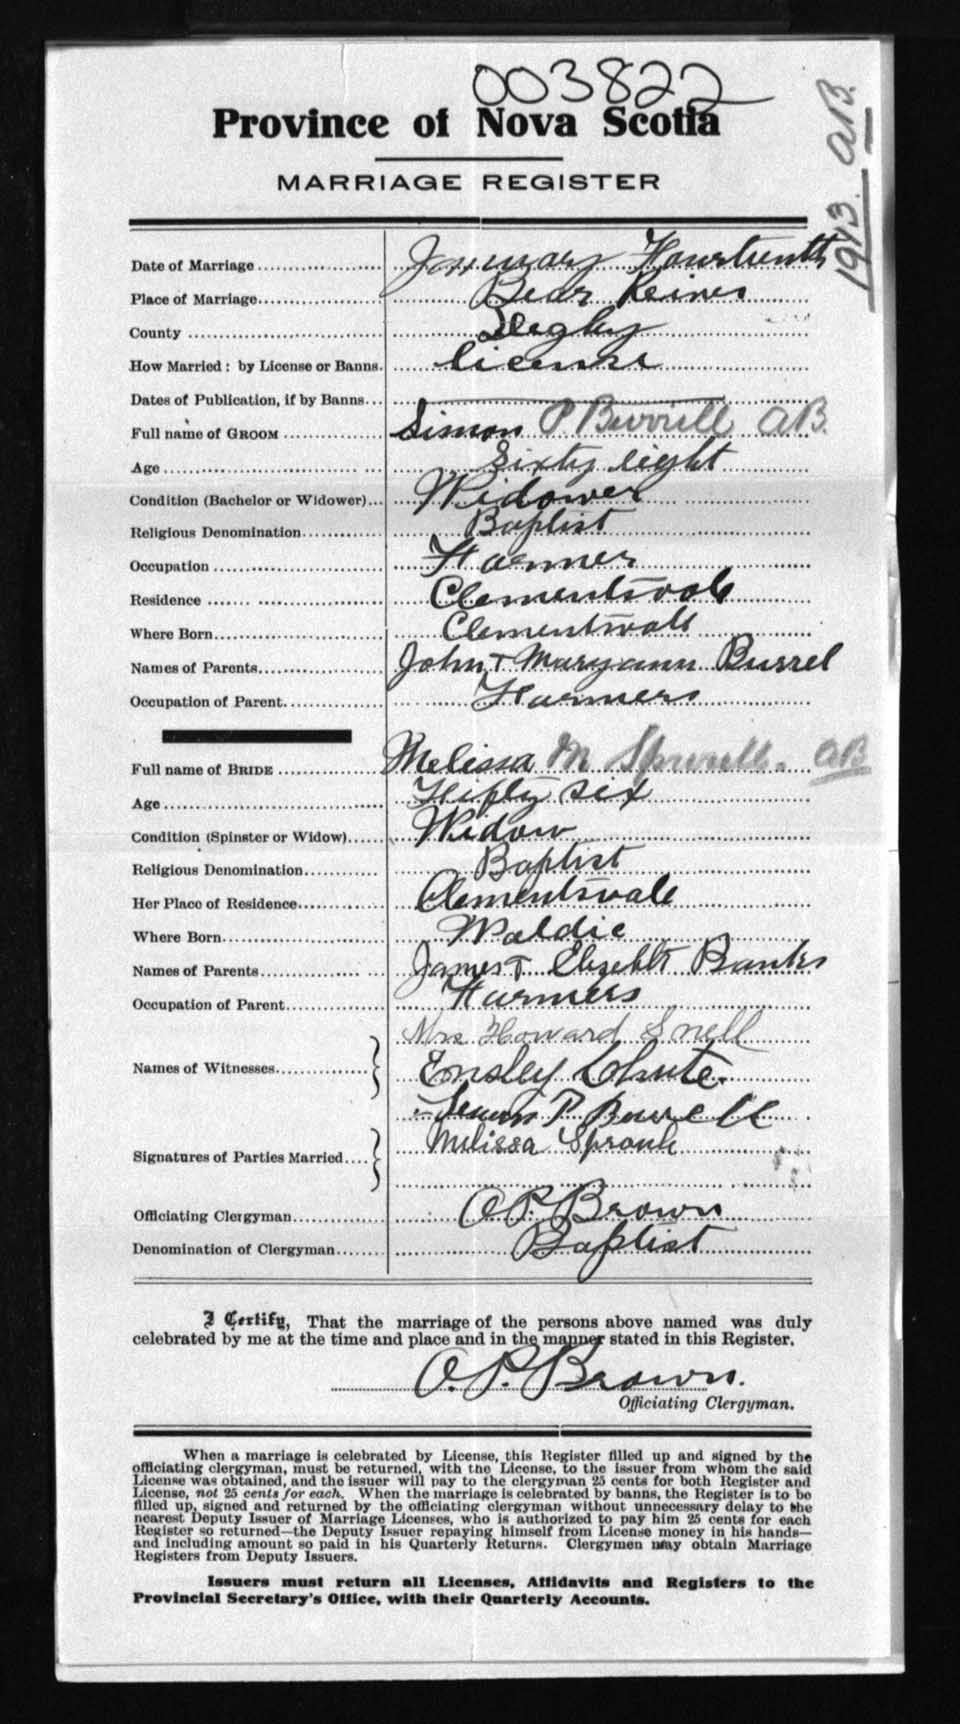 003822
Province of Nova Scotia
1913. AB.
MARRIAGE REGISTER
Date of Marriage January Fourteenth
Place of Marriage Bear River
County Degby
How Married: by License or Banns. license
Dates of Publication, if by Banns
Full name of GROOM Simon P Burrill AB.
Age Sixty eight
Condition (Bachelor or Widower) Widower
Religious Denomination Baptist
Occupation Farmer
Residence Clementsvale
Where Born Clementsvale
Names of Parents John + Maryann Burrel
Occupation of Parent Farmers
Full name of BRIDE Melissa M AB
Age Fifty six
Condition (Spinster or Widow) Widow
Religious Denomination Baptist
Her Place of Residence Clementsvale
Where Born Waldic
Names of Parents James + Banks
Occupation of Parent Farmers
Mrs Howard Snell
Names of Witnesses Ensley Chute.
P Burrell
Signatures of Parties Married Melissa
Officiating Clergyman O P. Brown
Denomination of Clergyman Baptist
I Certify, That the marriage of the persons above named was duly
celebrated by me at the time and place and in the manner stated in this Register.
O. P. Brown.
Officiating Clergyman.
When a marriage is celebrated by License, this Register filled up and signed by the
officiating clergyman, must be returned, with the License, to the issuer from whom the said
License was obtained, and the issuer will pay to the clergyman 25 cents for both Register and
License, not 25 cents for each. When the marriage is celebrated by banns, the Register is to be
filled up, signed and returned by the officiating clergyman without unnecessary delay to the
nearest Deputy Issuer of Marriage Licenses, who is authorized to pay him 25 cents for each
Register so returned—the Deputy Issuer repaying himself from License money in his hands—
and including amount so paid in his Quarterly Returns. Clergymen may obtain Marriage
Registers from Deputy Issuers.
Issuers must return all Licenses, Affidavits and Registers to the
Provincial Secretary's Office, with their Quarterly Accounts.